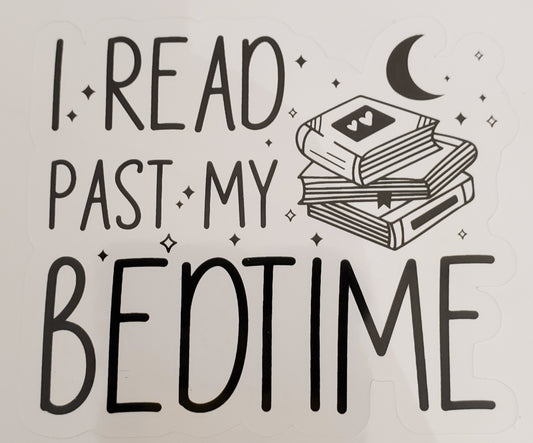 I READ
PAST MY
BEDTIME